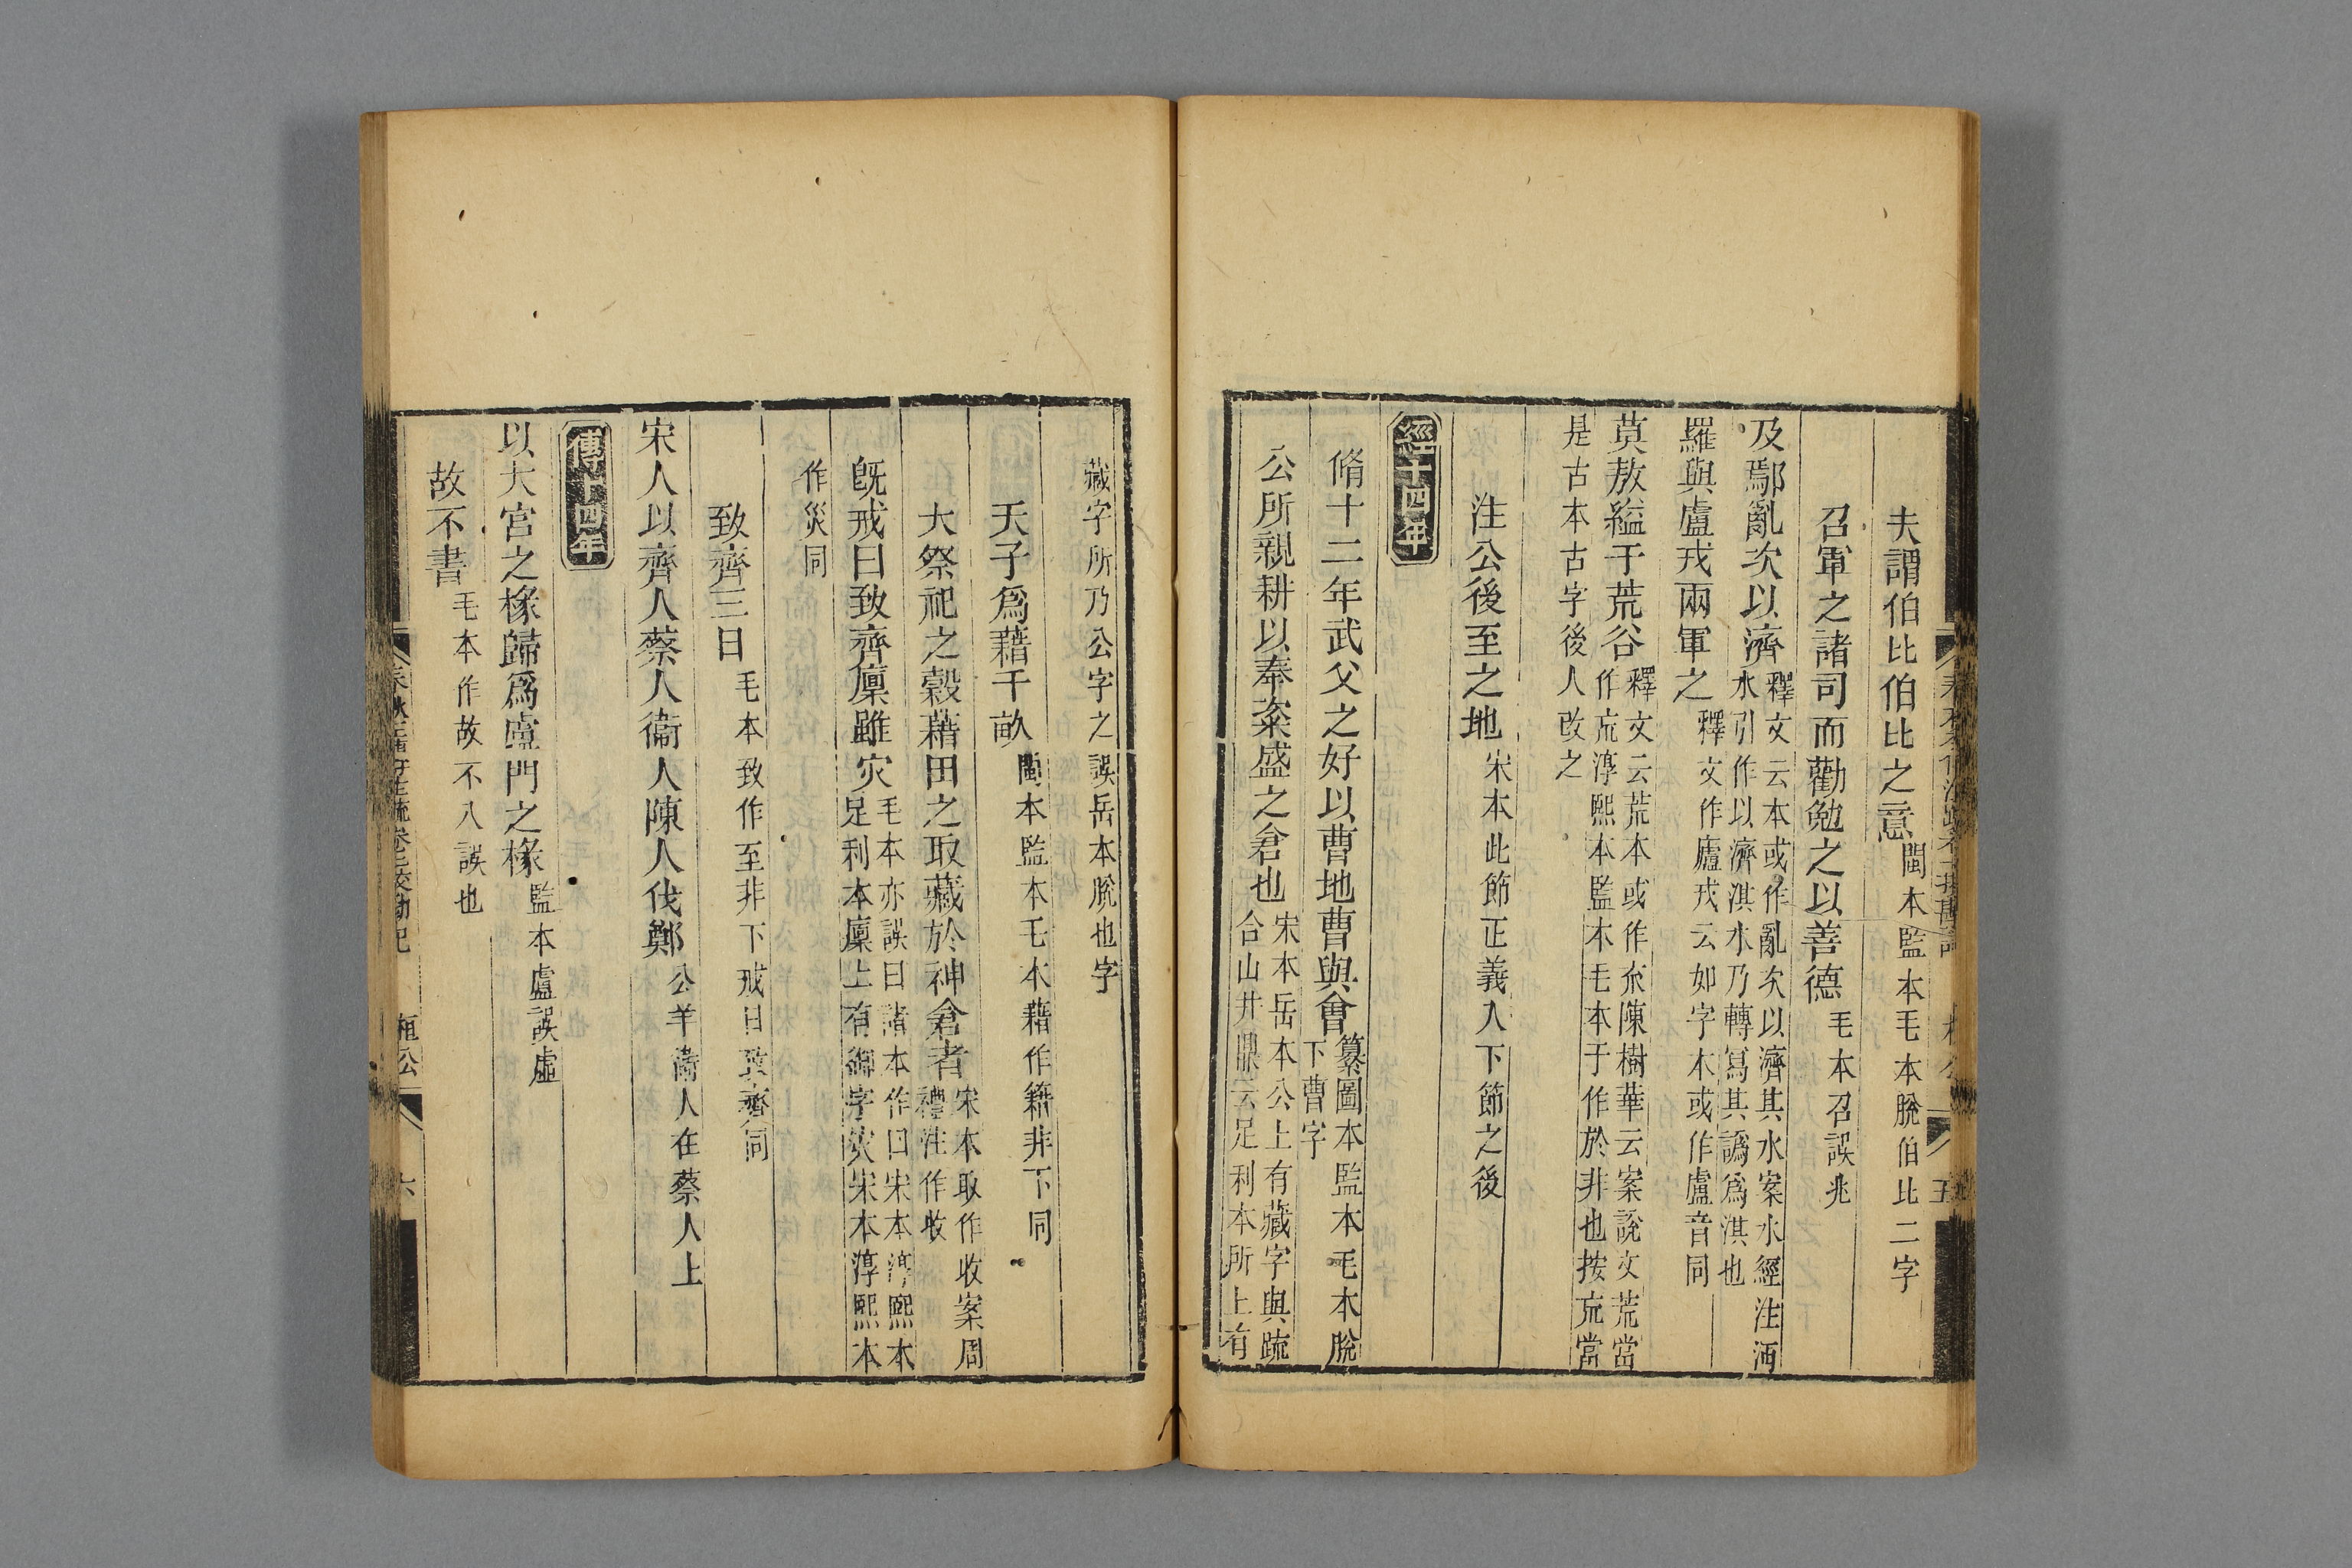 夫謂伯比伯比之意閩本監本毛本脫伯比二字
召軍之諸司而勸勉之以善德毛本召誤兆
及鄢亂次以濟釋文云本或作亂次以濟其水案水經注沔
水引作以濟淇水乃轉寫其譌爲淇也
羅與盧戎兩軍之釋文作廬戎云如字本或作盧音同
莫敖縊于荒谷釋文云荒本或作㐬陳樹華云案說文荒當
作㐬淳熙本監本毛本于作於非也按㐬當
是古本古字後人改之
注公後至之地宋本此節正義入下節之後
經十四年
脩十二年武父之好以曹地曹與會纂圖本監本毛本脫
下曹字
公所親耕以奉粢盛之倉也宋本岳本公上有藏字與疏
合山井鼎云足利本所上有
藏字所乃公字之誤岳本脫也字
天子爲藉千畝閩本監本毛本藉作籍非下同
大祭祀之穀藉田之取藏於神倉者宋本取作收案周
禮注作收
旣戒曰致齊廩雖灾毛本亦誤曰諸本作日宋本淳熙本
足利本廩上有御字灾宋本淳熙本
作災同
致齊三日毛本致作至非下戒日致齊同
宋人以齊人蔡人衞人陳人伐鄭公羊衞人在蔡人上
傳十四年
以大宮之椽歸爲盧門之椽監本盧誤虛
故不書毛本作故不八誤也
六